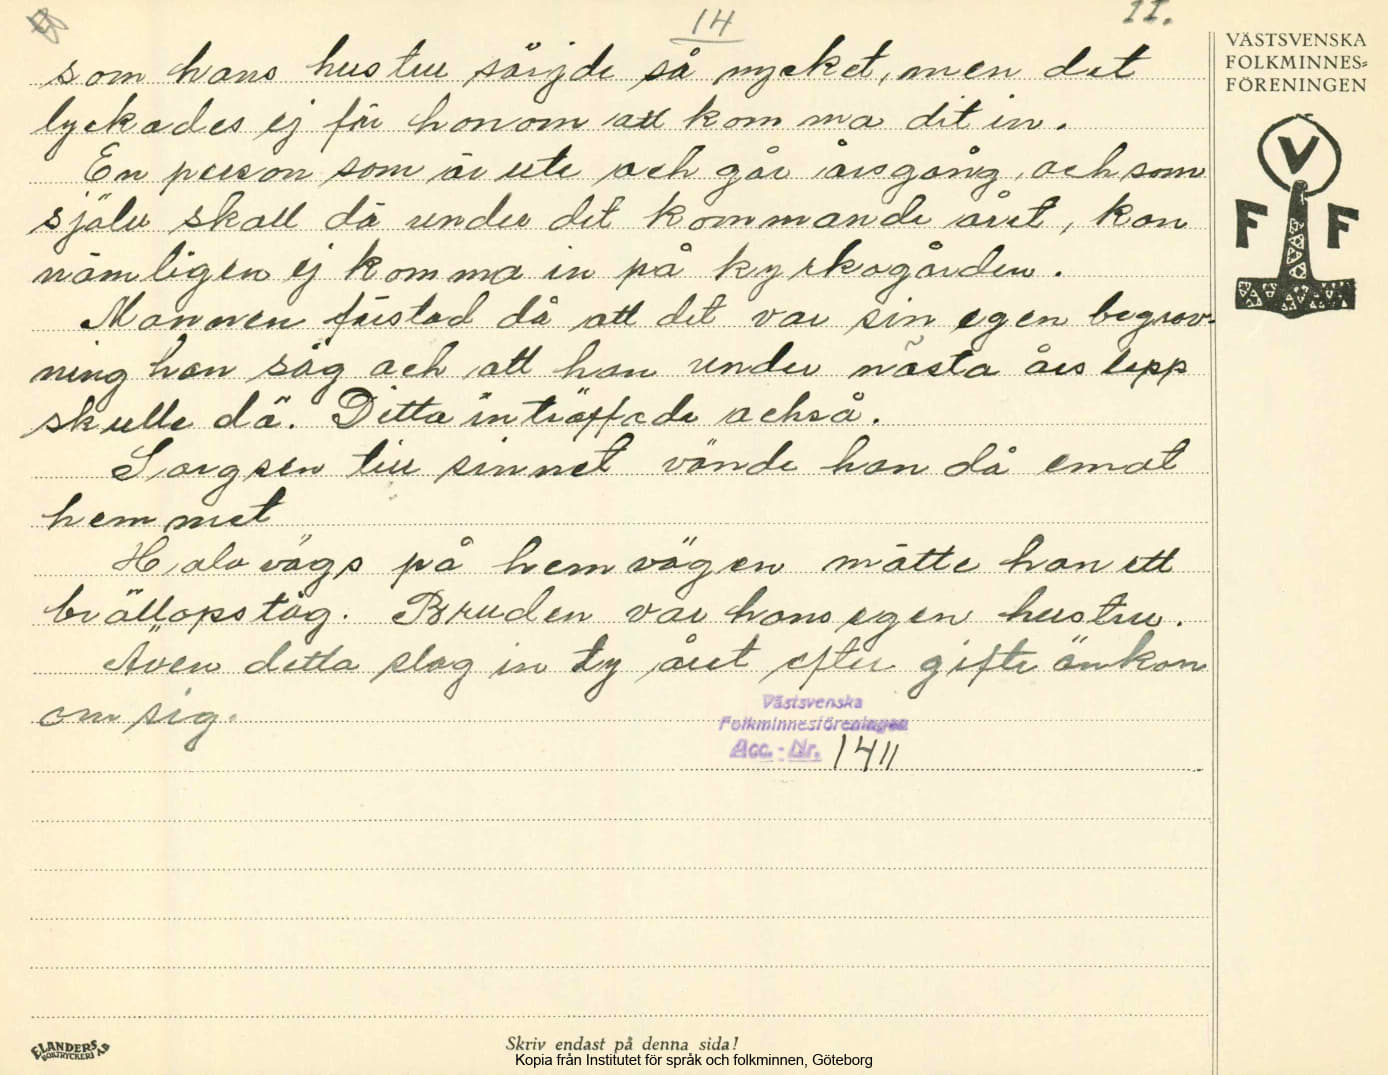 14
II.
VÄSTSVENSKA
FOLKMINNES-
FÖRENINGEN
V
F F
som hans hustru sörjde så mycket, men det
lyckades ej för honom att komma dit in.
En person som är ute och går årsgång, och som
själv skall dö under det kommande året, kan
nämligen ej komma in på kyrkogården.
Mannen förstod då att det var sin egen begrav-
ning han såg och att han under nästa års lopp
skulle dö. Detta inträffade också.
Sorgsen till sinnet vände han då emot
hemmet
Halvvägs på hemvägen mötte han ett
bröllopståg. Bruden var hans egen hustru.
Även detta slog in ty året efter gifte änkan
om sig.
Västsvenska
Folkminnesföreningen
Acc. - Nr. 1411
ELANDERS
BOKTRYCKERI A.B
Skriv endast på denna sida!
Kopia från Institutet för språk och folkminnen, Göteborg